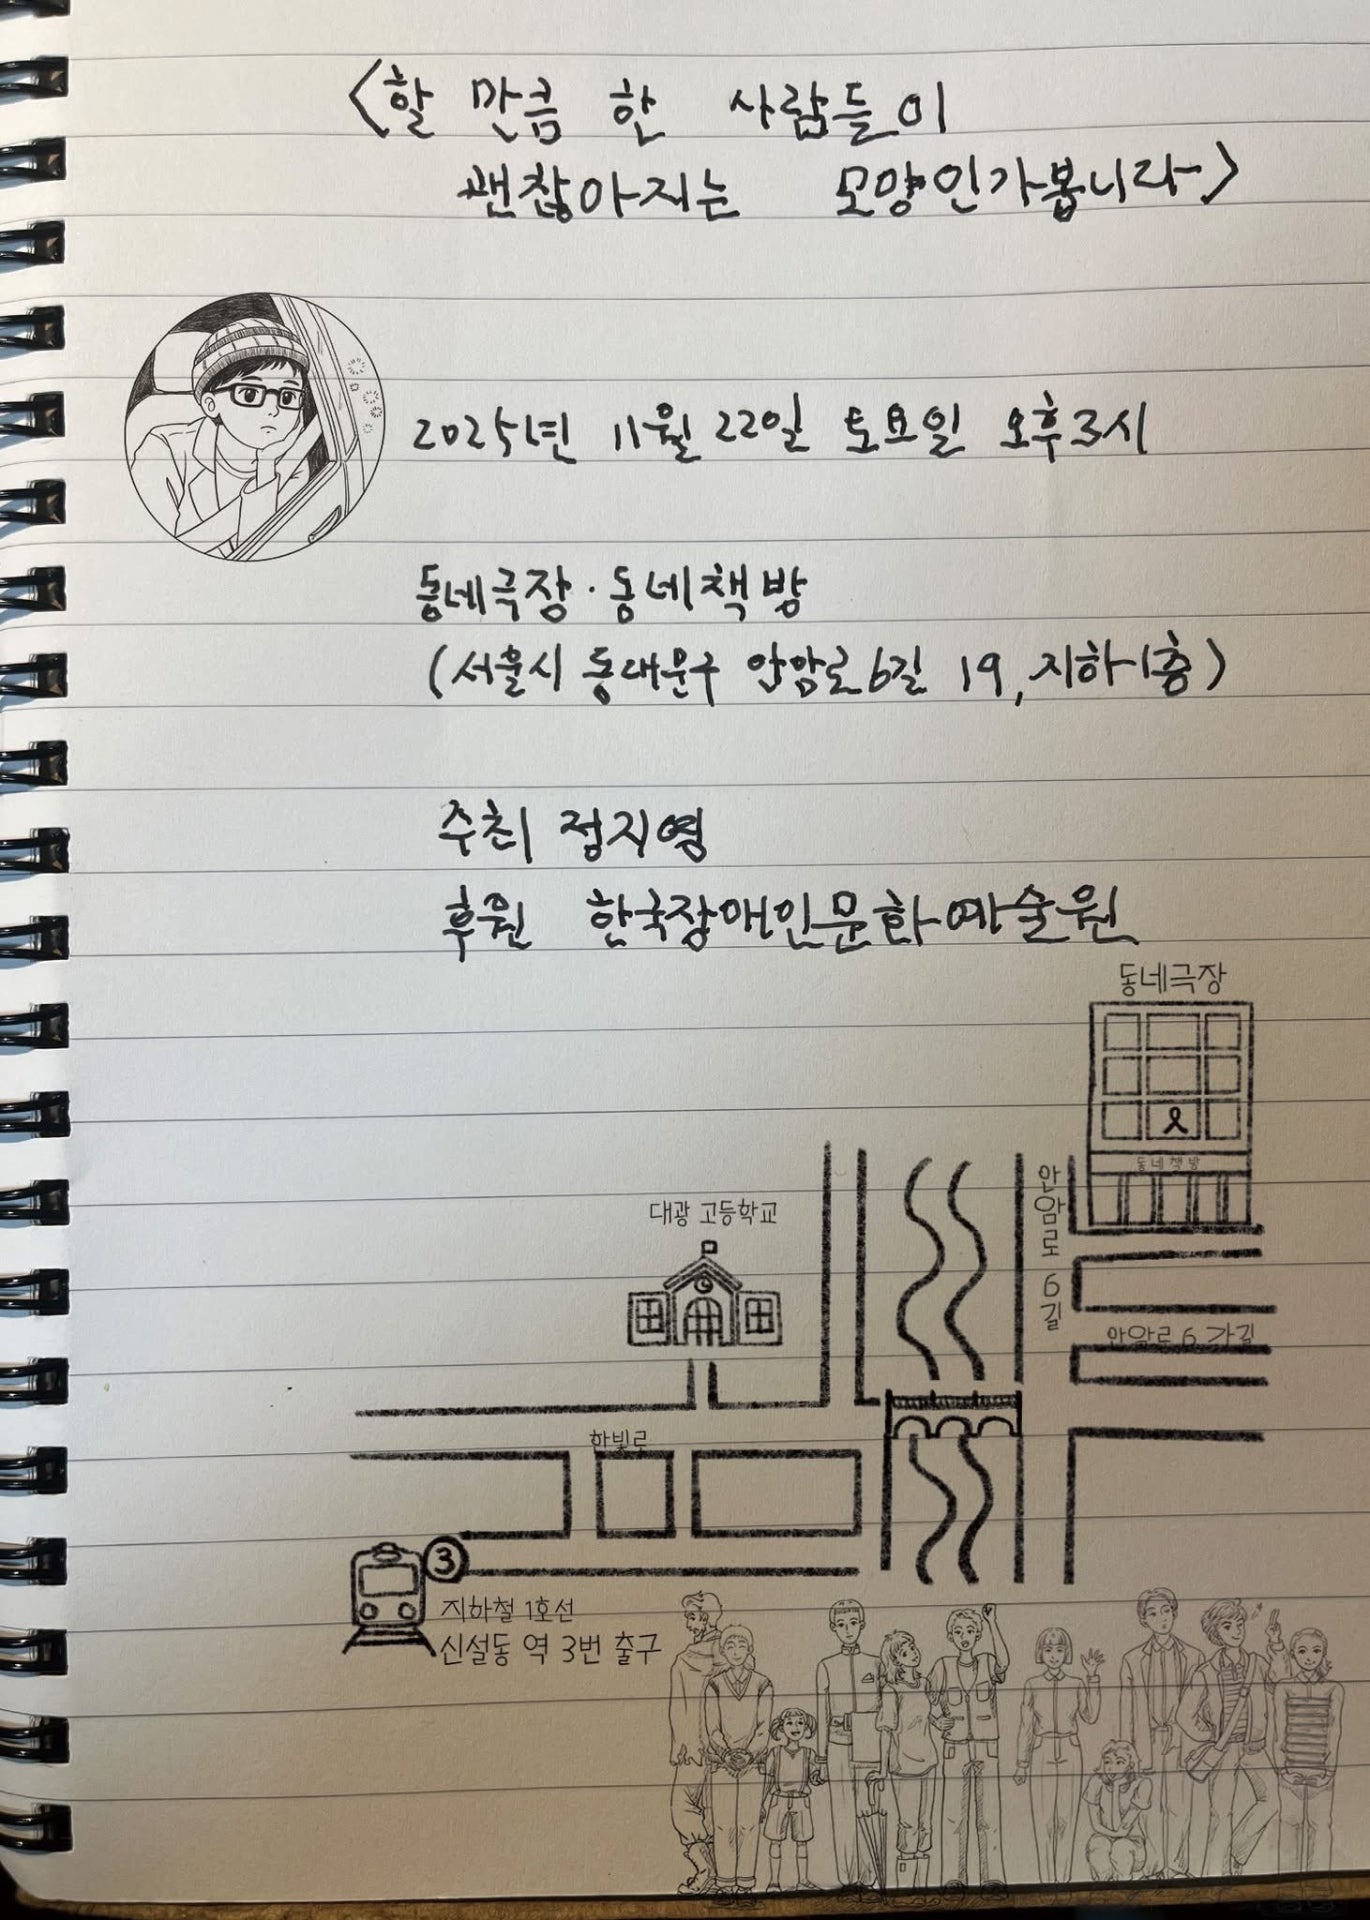 <할 만큼 한 사람들이
괜찮아지는 모양인가봅니다>
2025년 11월 22일 토요일 오후3시
동네극장·동네책방
(서울시 동대문구 안암로6길 19, 지하1층)
주최 정지영
후원 한국장애인문화예술원
동네극장
동네책방
안암로 6길
대광 고등학교
안암로 6 가길
한빛로
3
지하철 1호선
신설동 역 3번 출구